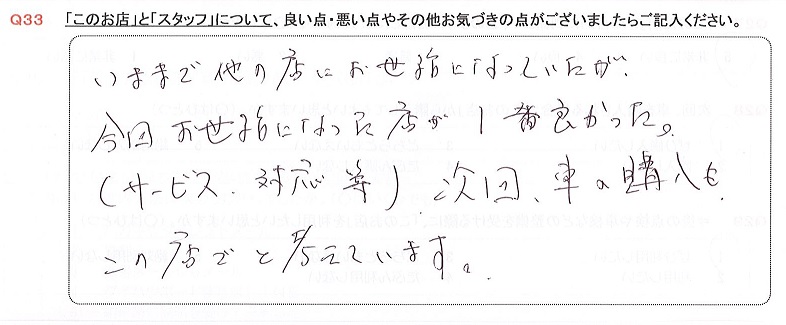 Q33 「このお店」と「スタッフ」について、良い点・悪い点やその他お気づきの点がございましたらご記入ください。
いままで他の店にお世話になっていたが、
今回お世話になった店が1番良かった。
(サービス、対応等)次回、車の購入も、
この店でと考えています。